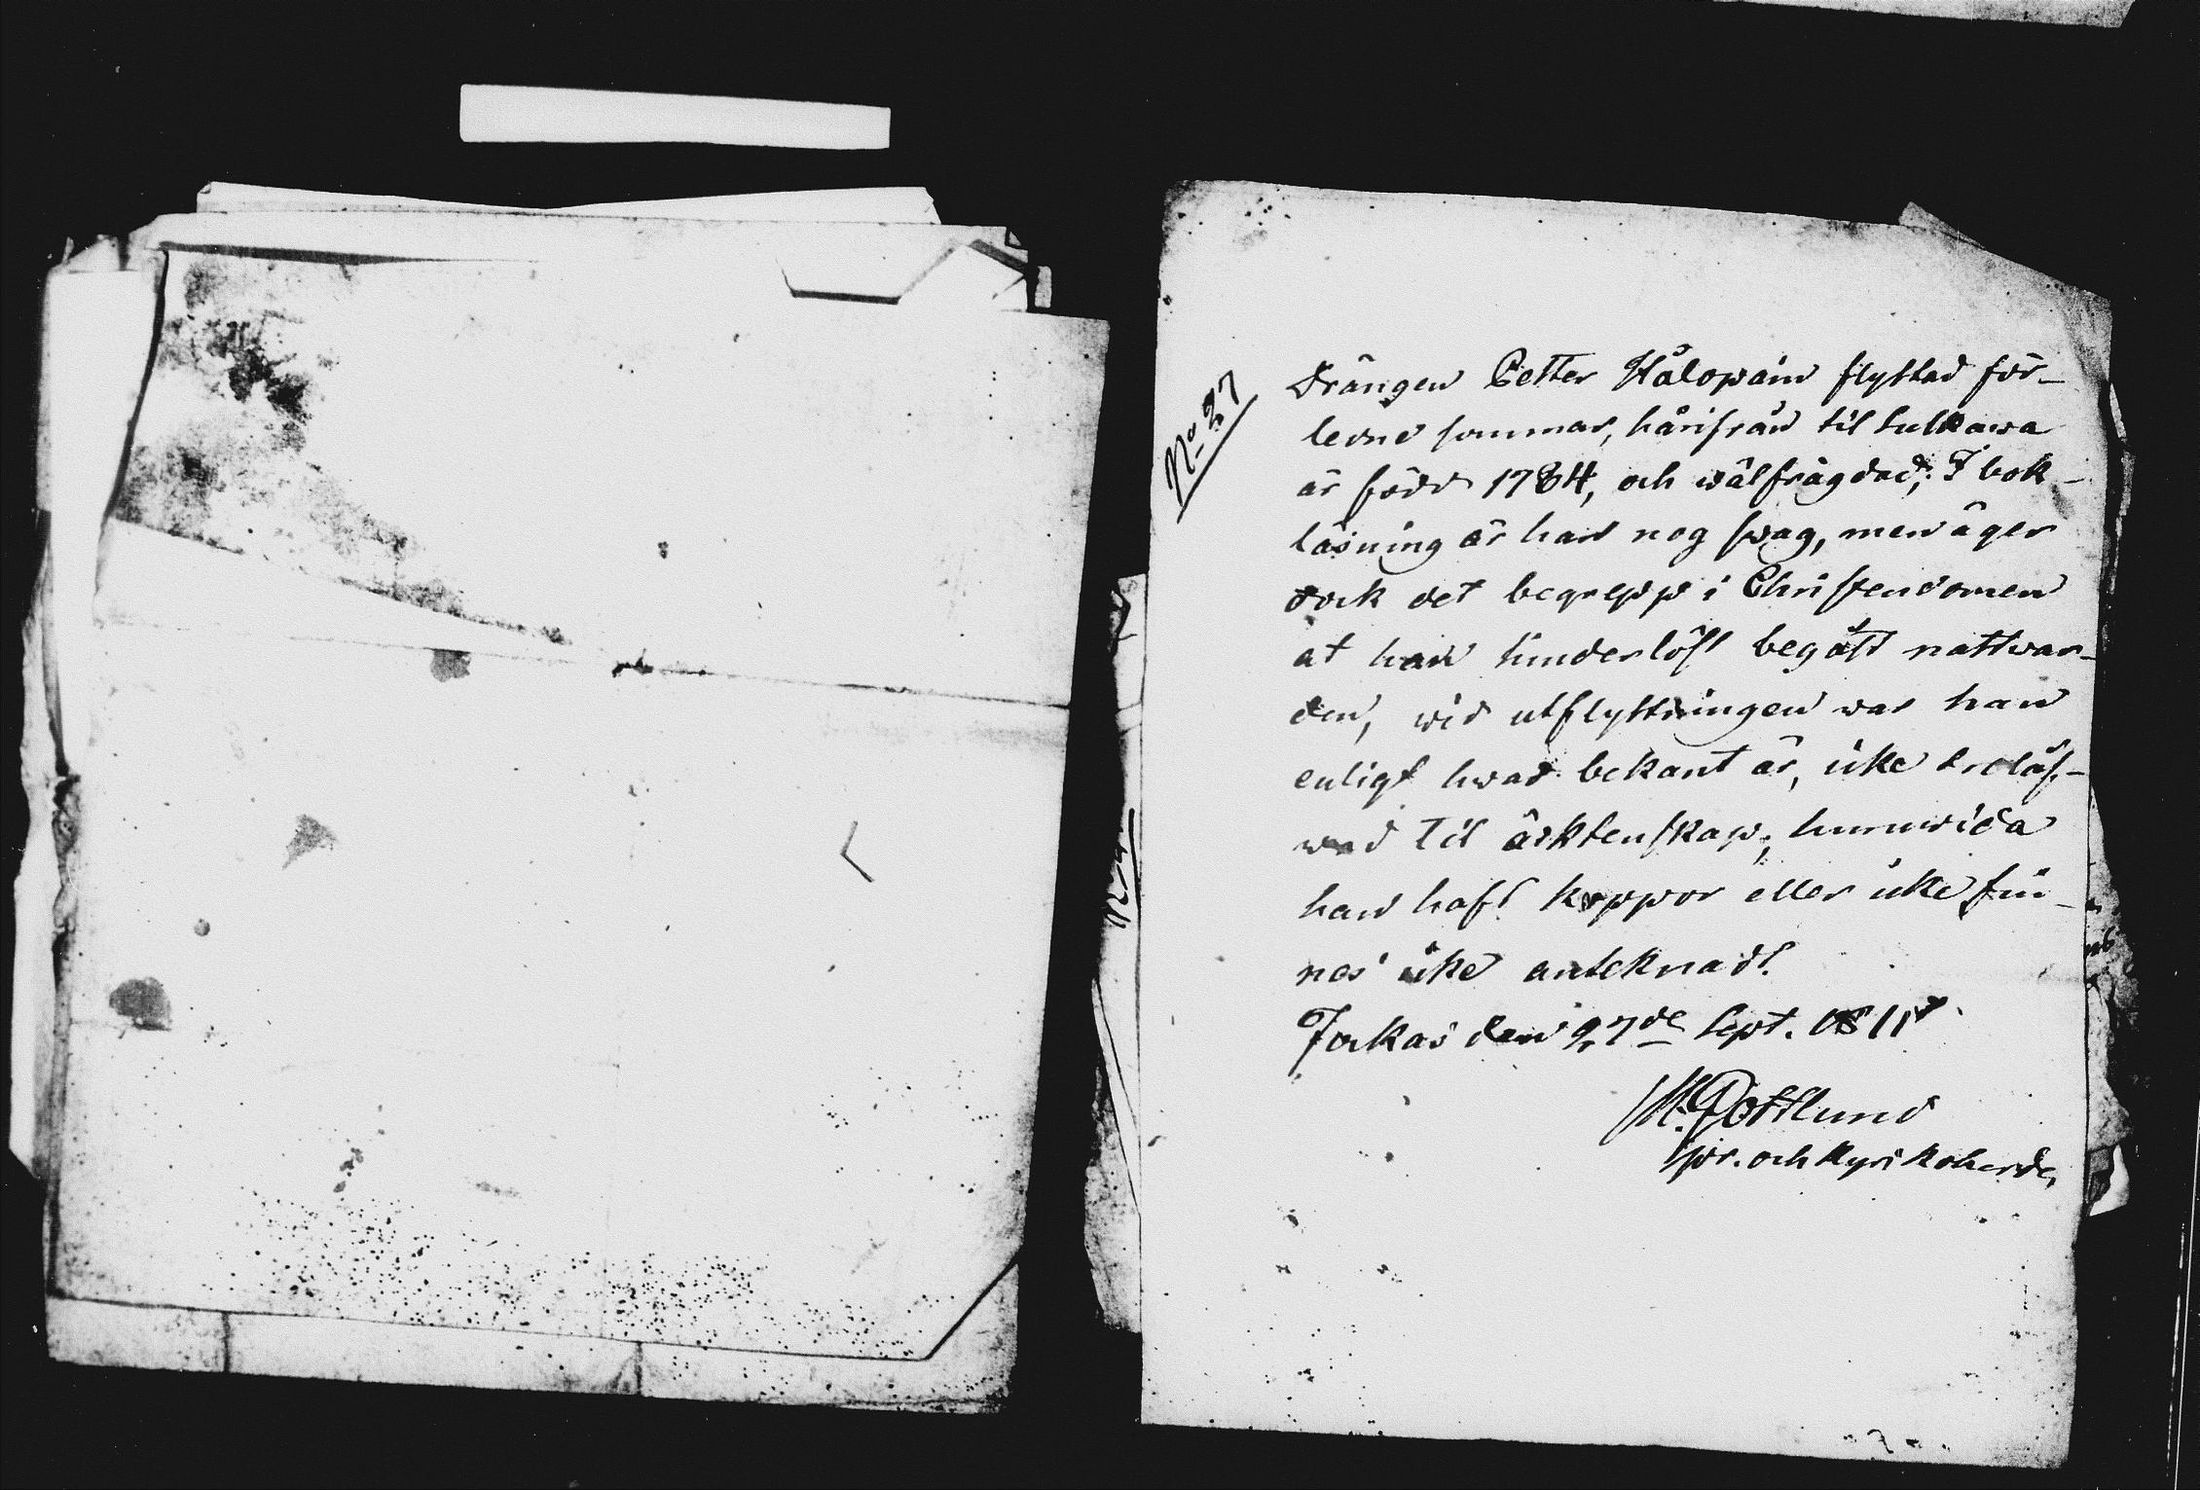 No 27
Drängen Petter Håłopain flyttad för-
ledne sommar, härifrån til Sulkawa
är född 1784, och wälfrägdad; I bok-
läsning är han nog swag, men äger
dock det begrepp i Christendomen
at han hinderlöst begått nattwar-
den, wid utflyttningen war han
enligt hwad bekant är, icke trolåf-
wad til äcktenskap; huruwida
han haft koppor eller icke fin-
nes icke anteknadt.
Jockas den 27de Sept. 1811
M. Gottlund
pr. och Kyrikoherde,